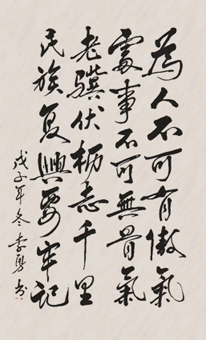 為人不可有傲氣
處事不可無骨氣
老驥伏櫪志千里
民族复興要牢記
戊子年冬李勇书